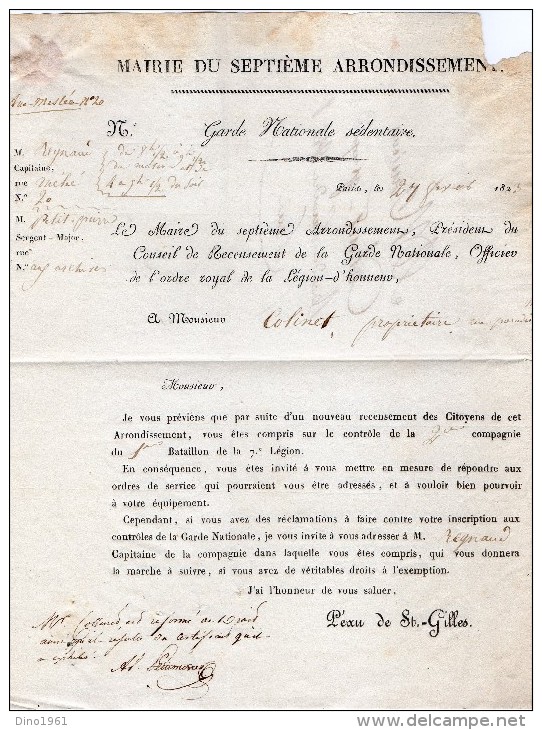 MAIRIE DU SEPTIÈME ARRONDISSEMENT.
N.º Garde Nationale sédentaire.
M. Regnaud
Capitaine,
rue
N.º 20
M. Petit-pierre
Sergent-Major.
rue
N.º aux archives
Paris, le 27 182
Le Maire du septième Arrondissement, Président du
Conseil de Recensement de la Garde Nationale, Officier
de l'ordre royal de la Légion-d'honneur,
A Monsieur Colinet, propriétaire
Monsieur,
Je vous préviens que par suite d'un nouveau recensement des Citoyens de cet
Arrondissement, vous êtes compris sur le contrôle de la compagnie
du Bataillon de la 7.e Légion.
En conséquence, vous êtes invité à vous mettre en mesure de répondre aux
ordres de service qui pourraient vous être adressés, et à vouloir bien pourvoir
à votre équipement.
Cependant, si vous avez des réclamations à faire contre votre inscription aux
contrôles de la Garde Nationale, je vous invite à vous adresser à M. Regnaud
Capitaine de la compagnie dans laquelle vous êtes compris, qui vous donnera
la marche à suivre, si vous avez de véritables droits à l'exemption.
J'ai l'honneur de vous saluer,
Péxu de St.-Gilles.
Mr. est réformé de Droit
ainsi qu'il résulte du certificat qu'il
a exhibé.
Dino1961
delcampe.net